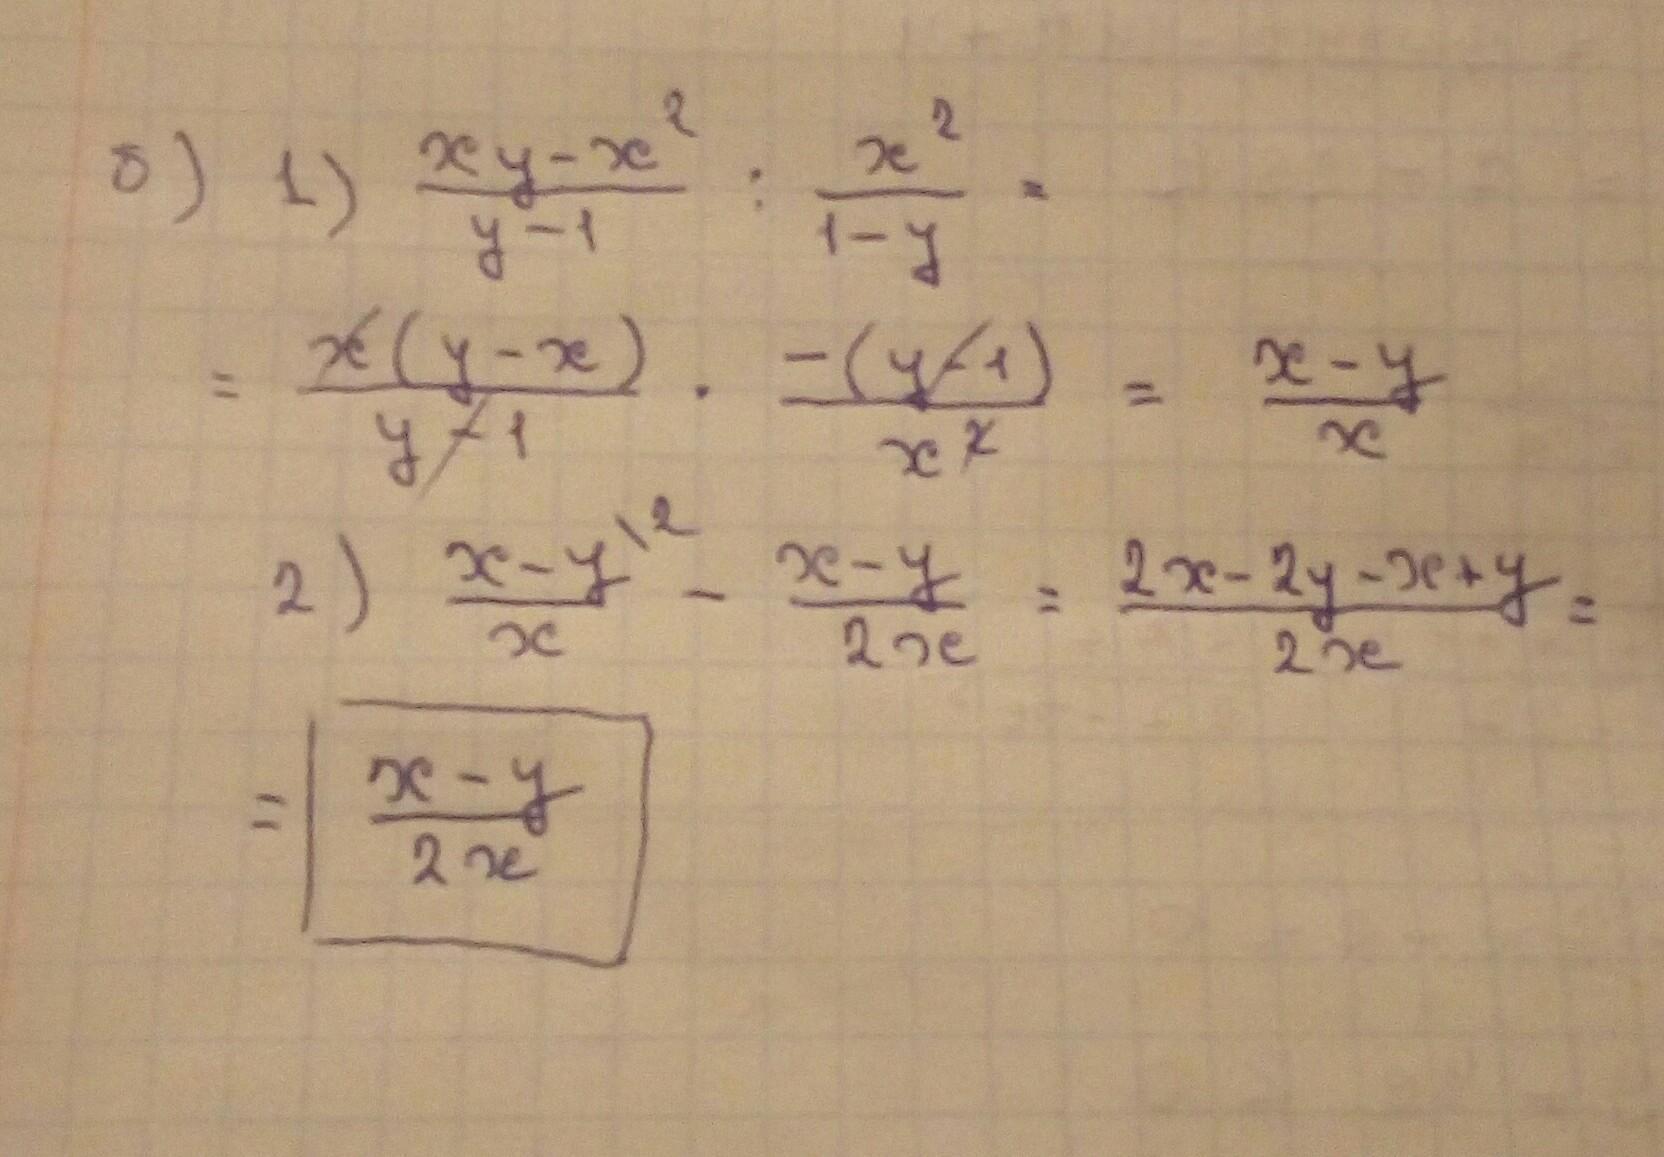 б) 1) \frac{xy-x^2}{y-1} : \frac{x^2}{1-y} =
= \frac{x(y-x)}{y-1} \cdot \frac{-(y-1)}{x^2} = \frac{x-y}{x}
2) \frac{x-y}{x}^{\backslash 2} - \frac{x-y}{2x} = \frac{2x-2y-x+y}{2x} =
= \frac{x-y}{2x}